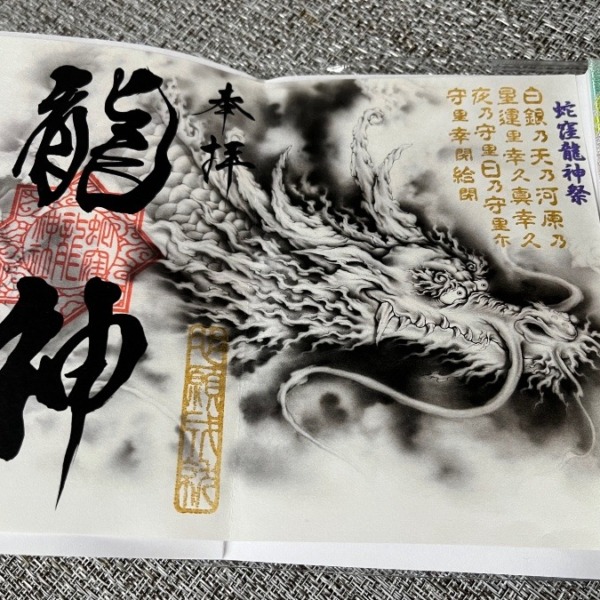 蛇窪龍神祭
白銀乃天乃河原乃
星運里幸久真幸久
夜乃守里日乃守里尓
守里幸閇給閇
奉拝
龍神